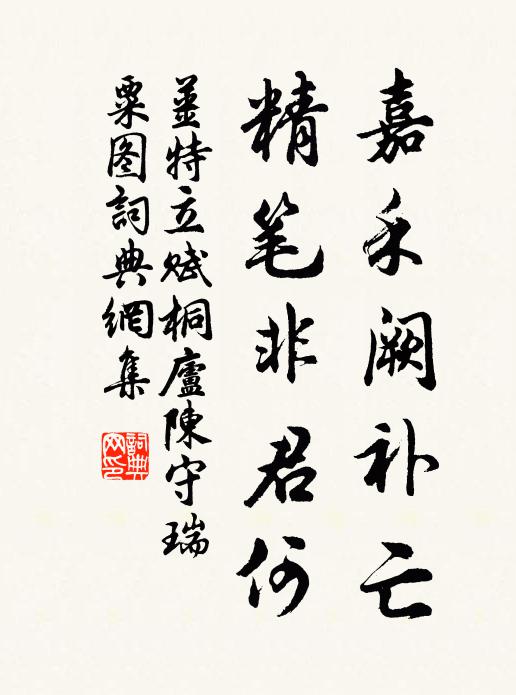 嘉禾阙补亡
精笔非君何
姜特立赋桐廬陳守瑞
粟图詞典網集
詞典网印